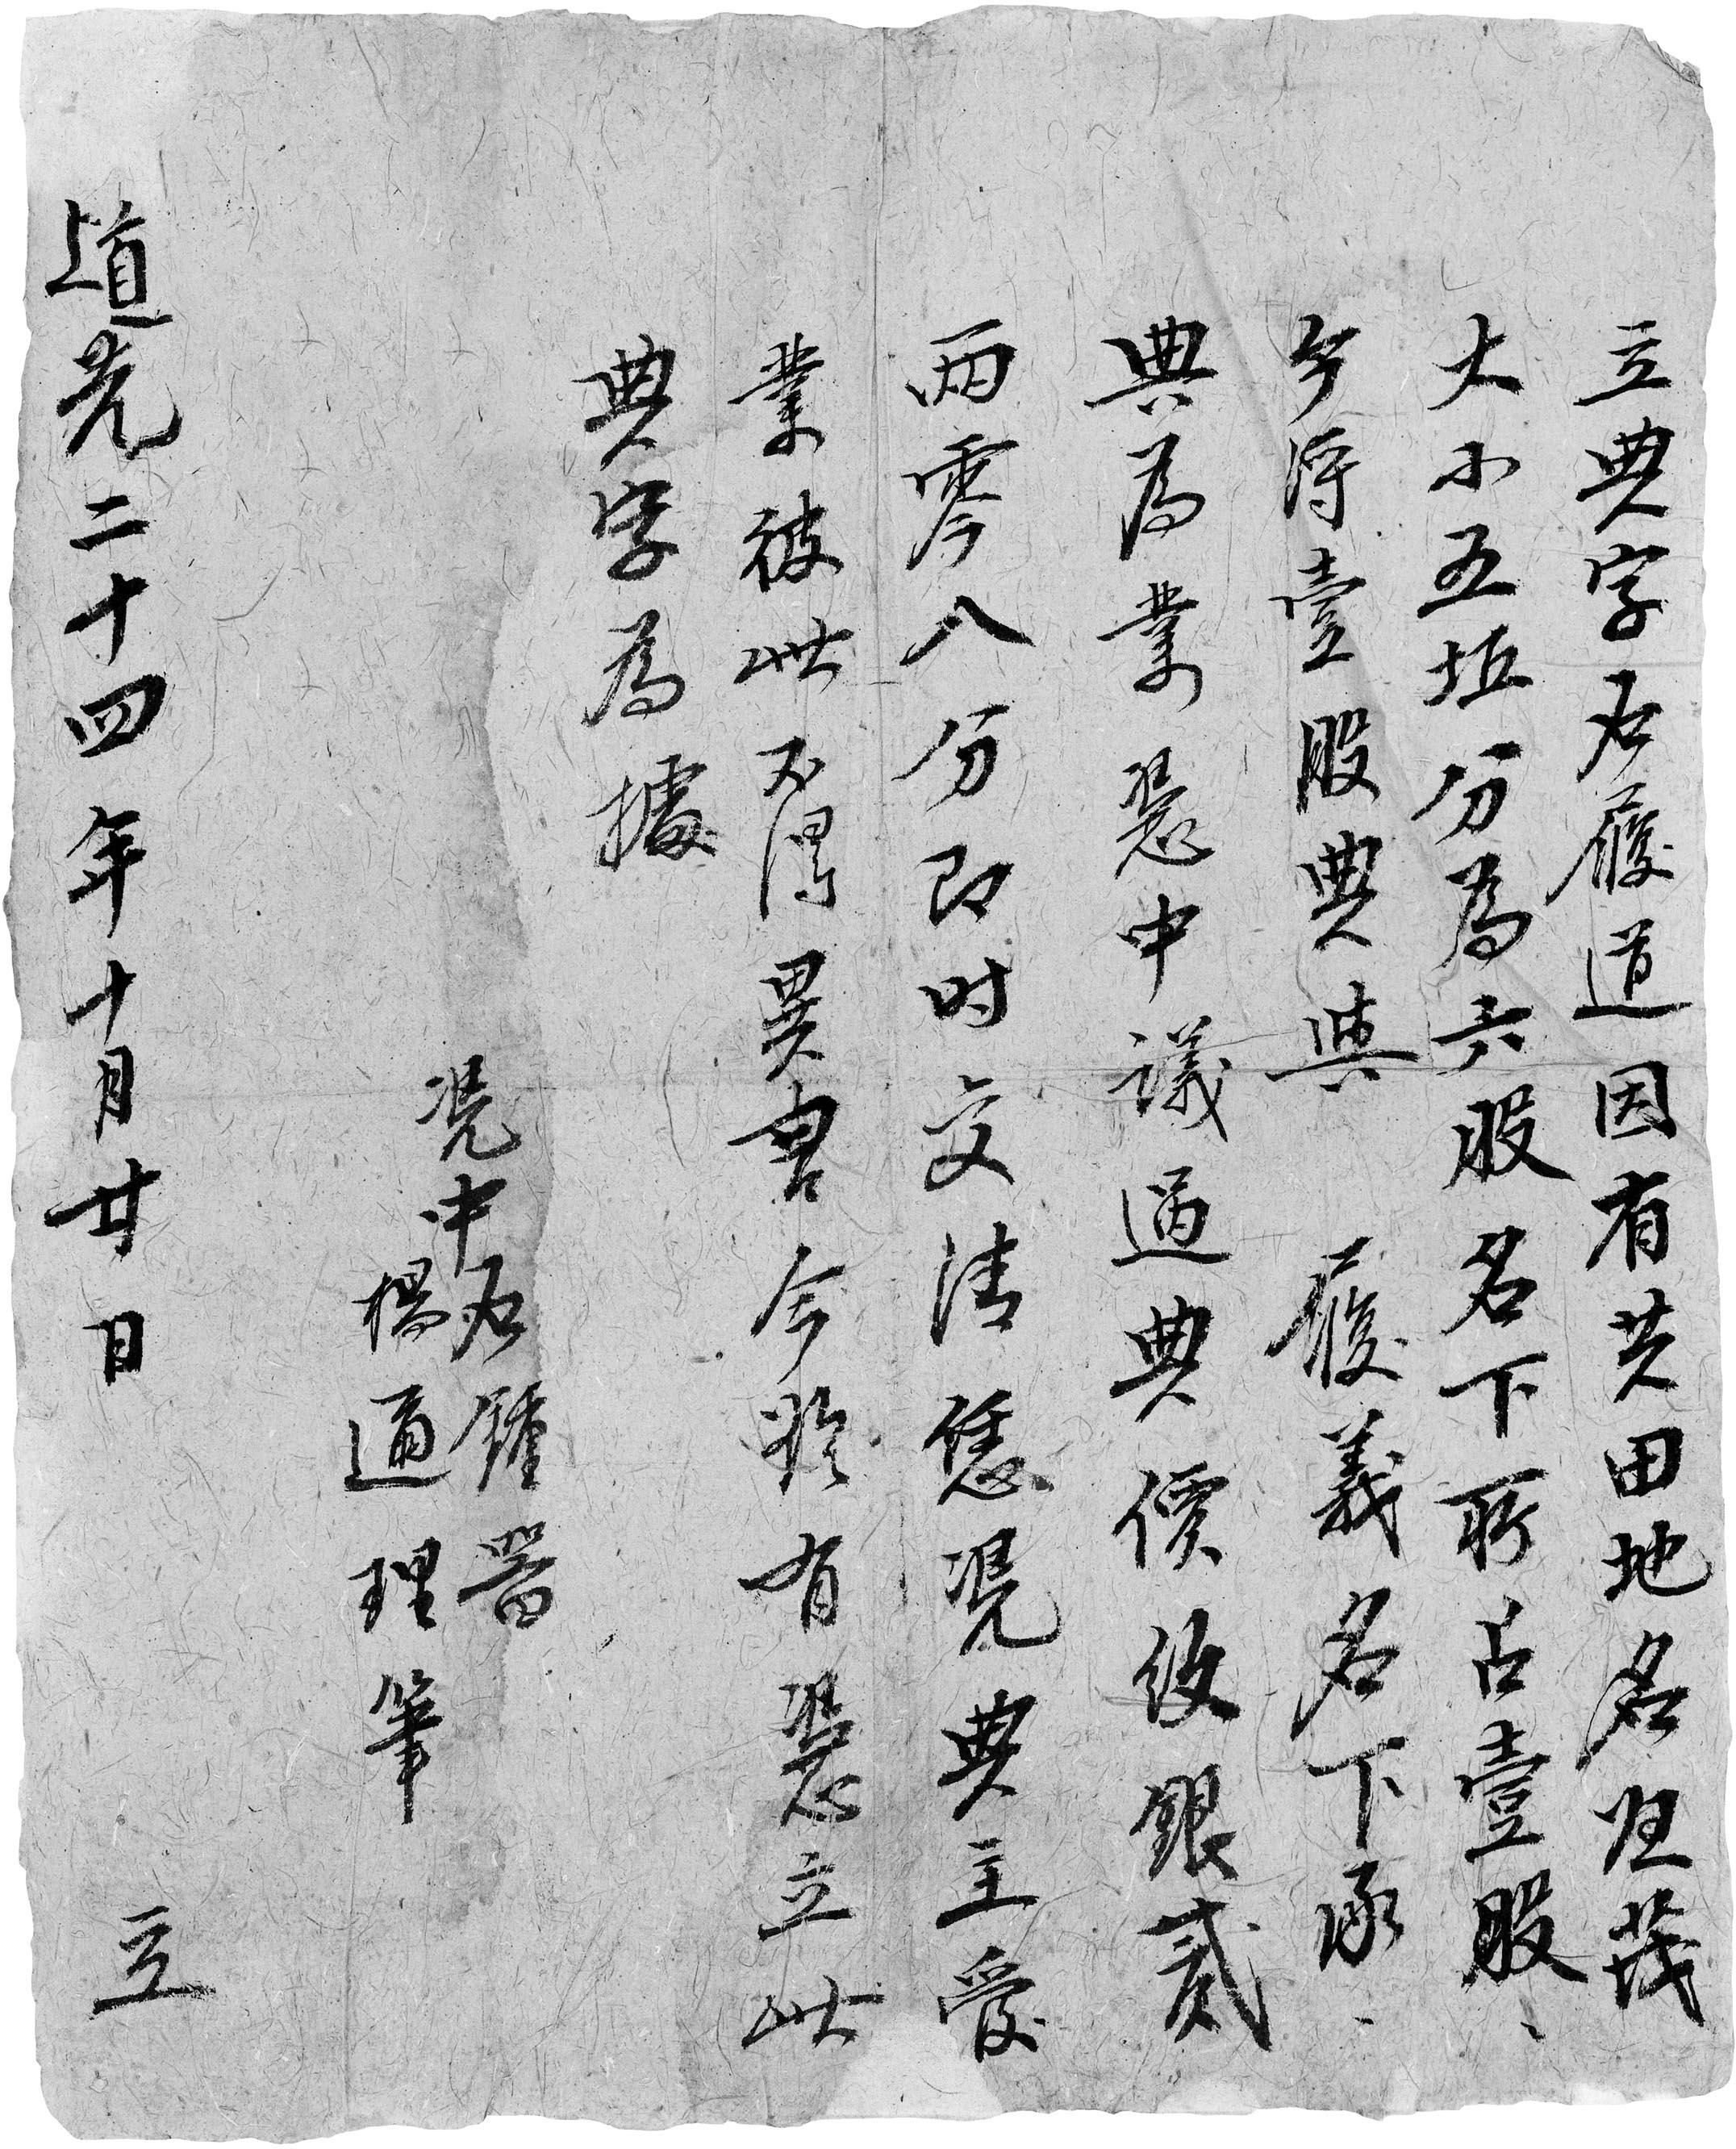 立典字石履道因有芝田地名坵茂
大小五坵分為六股名下所占壹股
今將壹股典與 履義名下承
典為業憑中議過典價紋銀貳
兩零八分即时交清恁憑典主受
業彼此不得異言今欲有憑立此
典字為據
憑中石鍾器
楊通理筆
道光二十四年十月廿日 立